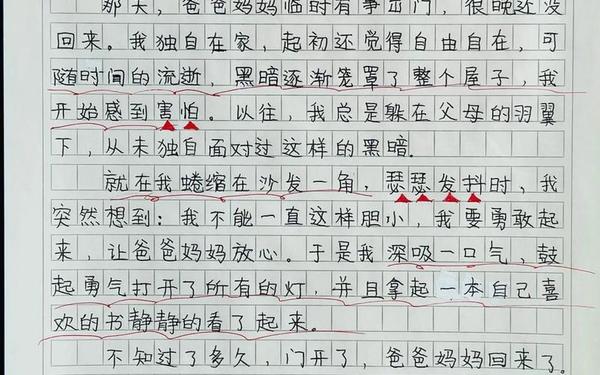 那天，爸爸妈妈临时有事出门，很晚还没
回来。我独自在家，起初还觉得自由自在，可
随时间的流逝，黑暗逐渐笼罩了整个屋子，我
开始感到害怕。以往，我总是躲在父母的羽翼
下，从未独自面对过这样的黑暗.
就在我蜷缩在沙发一角，瑟瑟发抖时，我
突然想到：我不能一直这样胆小，我要勇敢起
来，让爸爸妈妈放心。于是我深吸一口气，鼓
起勇气打开了所有的灯，并且拿起一本自己喜
欢的书静静的看了起来。
不知过了多久，门开了，爸爸妈妈回来了。